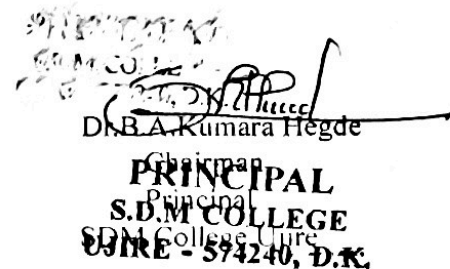 PRINCIPAL
S.D.M COLLEGE
Dr.B.A.Kumara Hegde
Chairman
PRINCIPAL
Principal
S.D.M COLLEGE
SDM College Ujire
UJIRE - 574240, D.K.